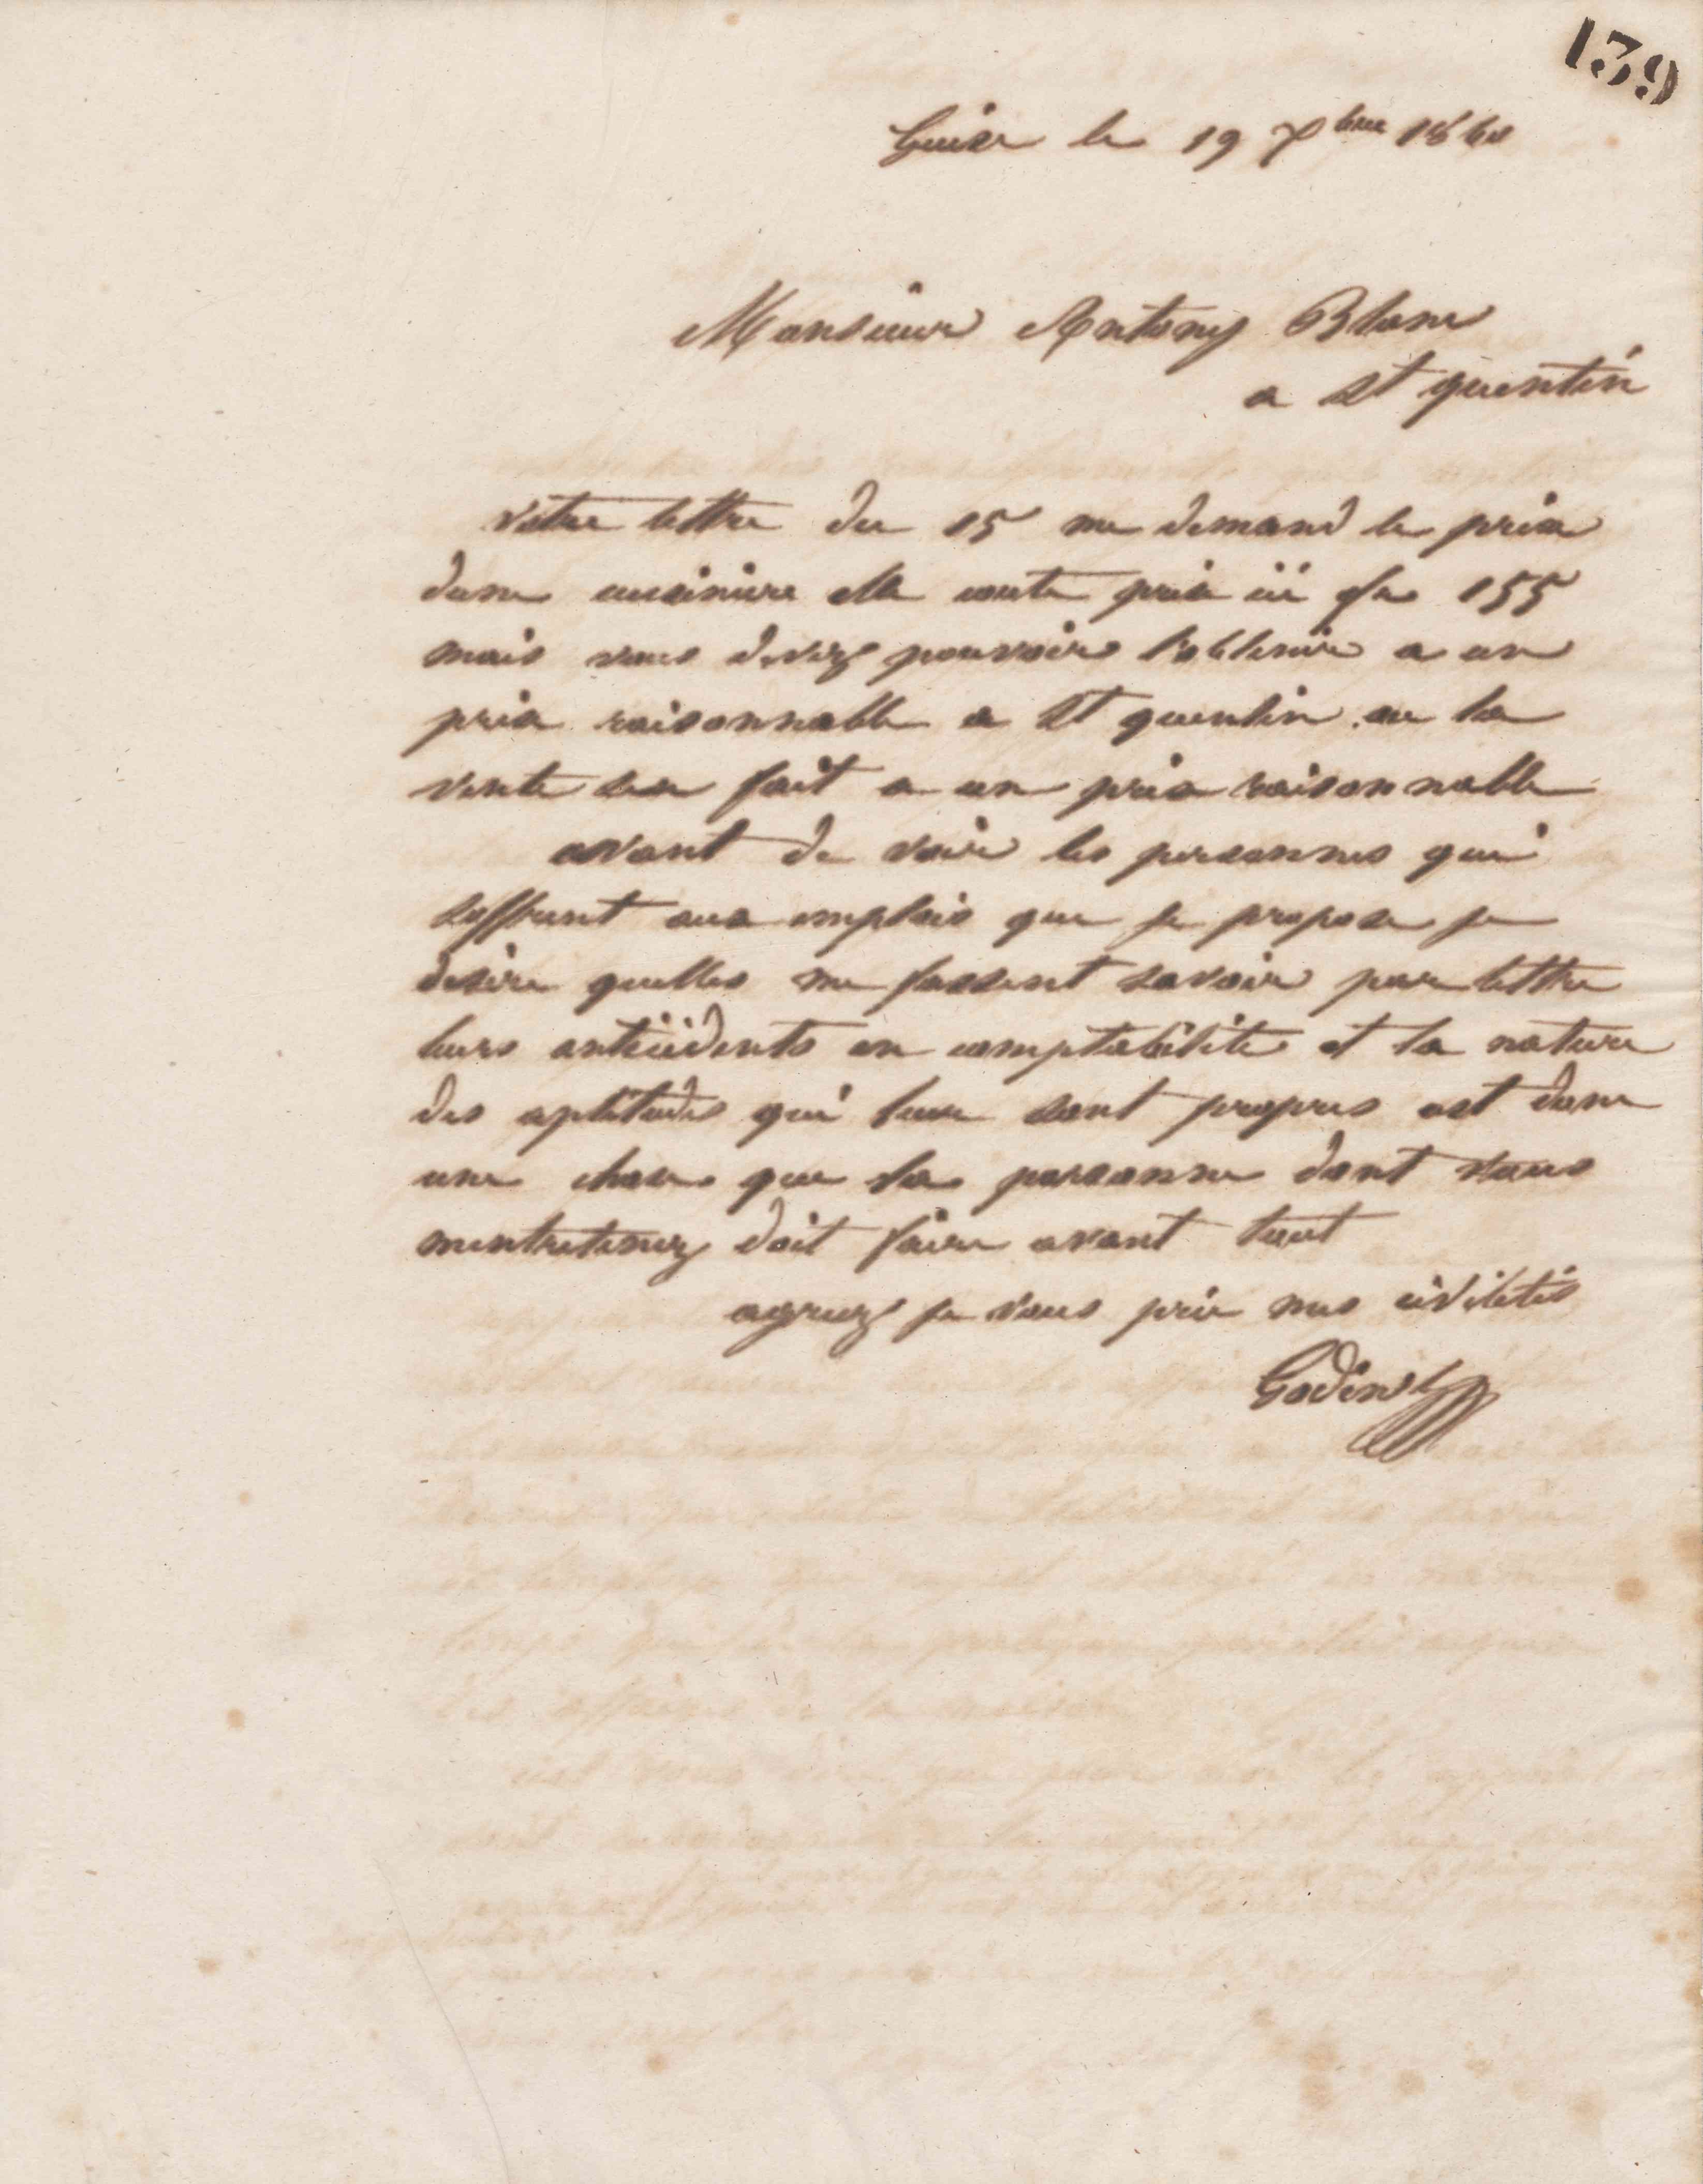 139
Guise le 19 Xbre 1860
Monsieur Antony Blanc
a St quentin
votre lettre du 15 me demand le prix
dune cuisiniere elle coute prix ici fr 155
mais vous devez pouvoir l'obtenir a un
prix raisonnable a St quentin ou la
vente sen fait a un prix raisonnable
avant de voir les personnes qui
soffrent aux emplois que je propose je
desire quelles me fassent savoir par lettre
leurs antécédents en comptabilité et la nature
des aptitudes qui leur sont propres cest donc
une chose que la personne dont vous
mentretenez doit faire avant tout
agreez je vous prie mes civilités
Godin